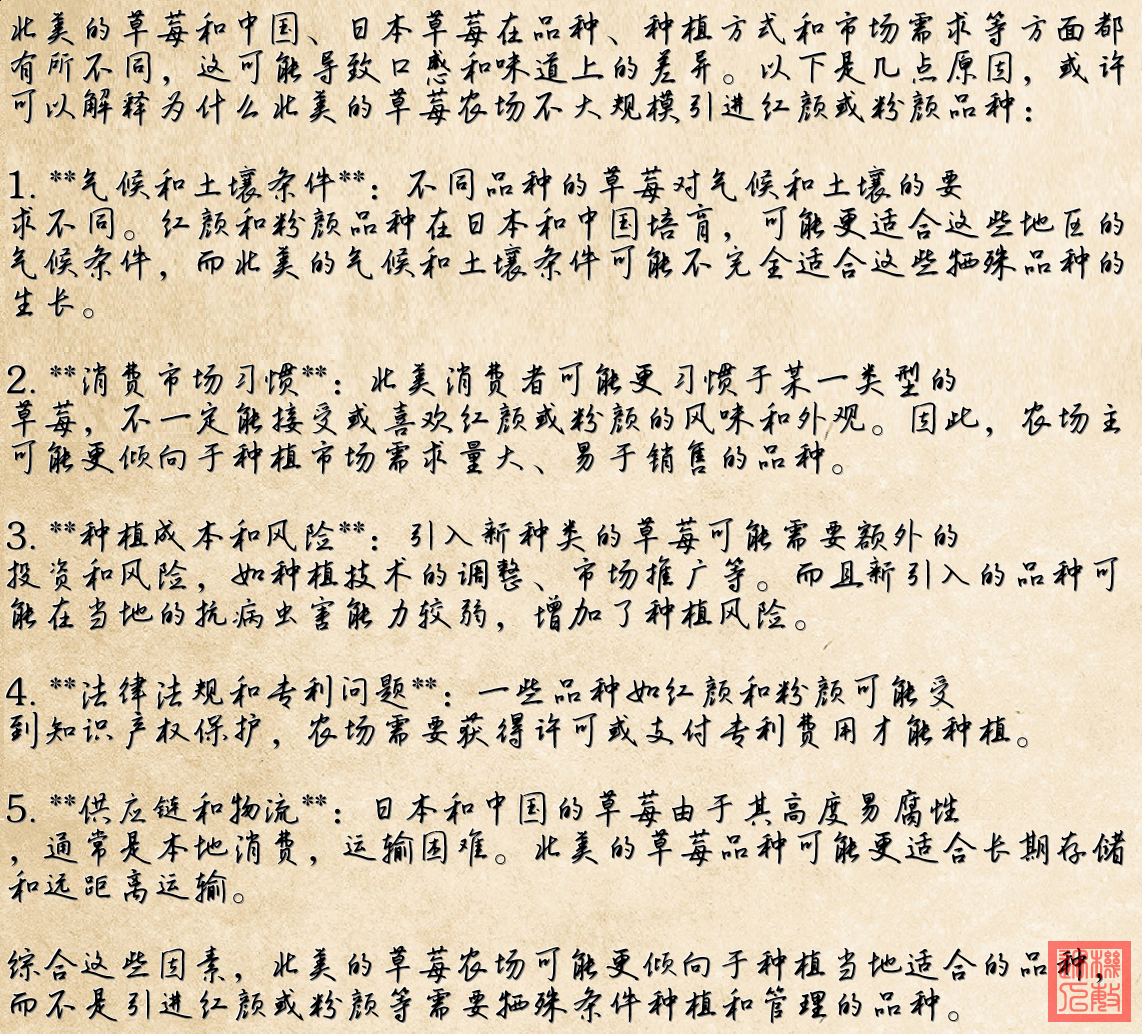 北美的草莓和中国、日本草莓在品种、种植方式和市场需求等方面都
有所不同，这可能导致口感和味道上的差异。以下是几点原因，或许
可以解释为什么北美的草莓农场不大规模引进红颜或粉颜品种：
1. **气候和土壤条件**：不同品种的草莓对气候和土壤的要
求不同。红颜和粉颜品种在日本和中国培育，可能更适合这些地区的
气候条件，而北美的气候和土壤条件可能不完全适合这些特殊品种的
生长。
2. **消费市场习惯**：北美消费者可能更习惯于某一类型的
草莓，不一定能接受或喜欢红颜或粉颜的风味和外观。因此，农场主
可能更倾向于种植市场需求量大、易于销售的品种。
3. **种植成本和风险**：引入新种类的草莓可能需要额外的
投资和风险，如种植技术的调整、市场推广等。而且新引入的品种可
能在当地的抗病虫害能力较弱，增加了种植风险。
4. **法律法规和专利问题**：一些品种如红颜和粉颜可能受
到知识产权保护，农场需要获得许可或支付专利费用才能种植。
5. **供应链和物流**：日本和中国的草莓由于其高度易腐性
，通常是本地消费，运输困难。北美的草莓品种可能更适合长期存储
和远距离运输。
综合这些因素，北美的草莓农场可能更倾向于种植当地适合的品种，
而不是引进红颜或粉颜等需要特殊条件种植和管理的品种。